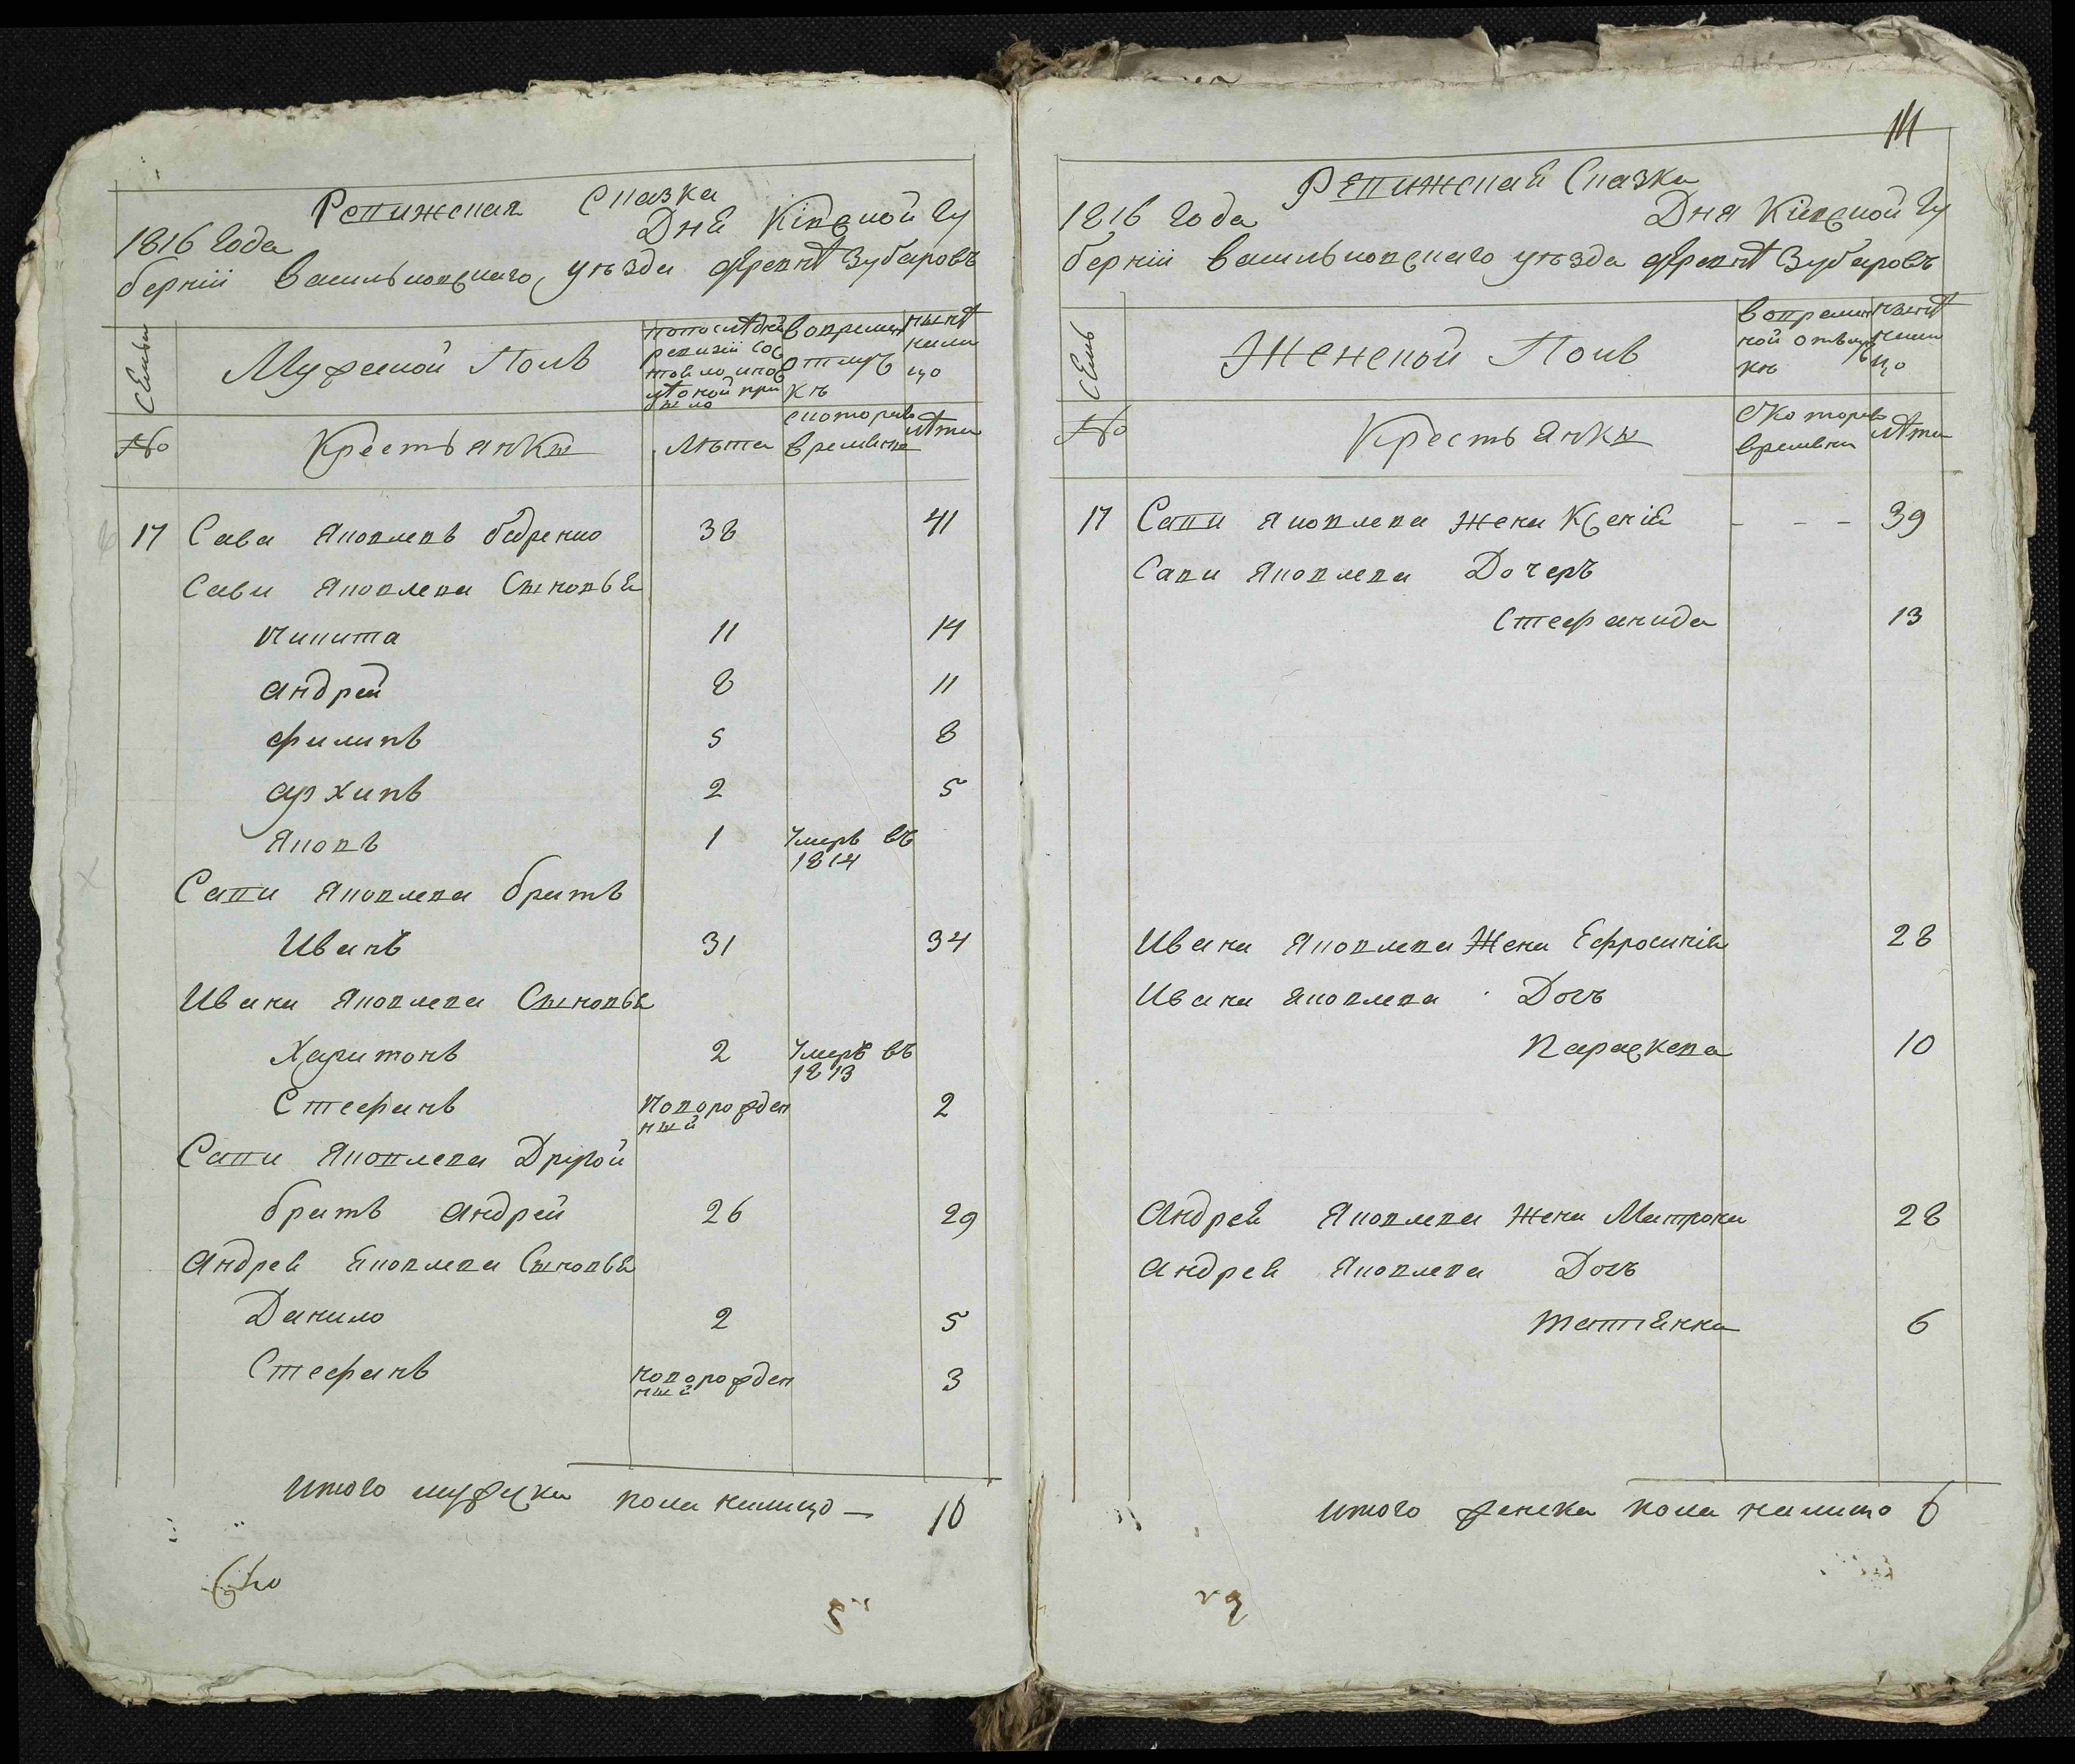 Ревижская Сказка
1816 Года Дня Кіевской Гу
берніи Васильковскаго уѣзда деревнѣ Зубаровъ
Семьи
Мужеской Полъ
попослѣдней ревизіи состояло и послѣ оной прибыло
вовремян отлучкѣ
нынѣ налицо
№
Крестьянкы
Лѣта
скоторого времени
лѣта
17 Сава Яковлевъ бедренко 38 41
Сави Яковлева Сыновья
Никита 11 14
Андрей 8 11
Филипъ 5 8
Архипъ 2 5
Яковъ 1 Умеръ въ 1814
Сави Яковлева братъ
Иванъ 31 34
Ивана Яковлева Сыновья
Харитонъ 2 Умеръ въ 1813
Стефанъ Новорожденный 2
Сави Яковлева Другой
братъ Андрей 26 29
Андрея Яковлева Сыновья
Данило 2 5
Стефанъ новорожденный 3
Итого мужеска пола налицо — 10
Ревижская Сказка
1816 Года Дня Кіевской Гу
берніи Васильковскаго уѣзда деревнѣ Зубаровъ
Семь
Женской Полъ
вовременной отлучкѣ
нынѣ налицо
№
Крестьянкы
Скоторого времени
лѣта
17 Сави Яковлева Жена Ксенія - - - 39
Сави Яковлева Дочеръ
Стефанида 13
Ивана Яковлева Жена Ефросинія 28
Ивана Яковлева Дочъ
Параскева 10
Андрея Яковлева Жена Матрона 28
Андрея Яковлева Дочъ
Татіянна 6
Итого женска пола налицо 6